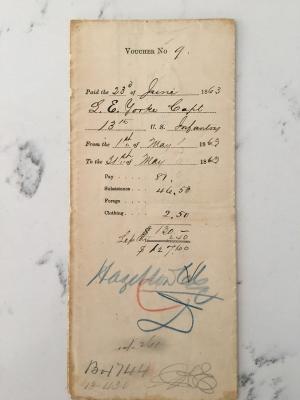 VOUCHER No 9.
Paid the 23d of June 1863
L. E. Yorke Capt
13th U. S. Infantry
From the 1st of May 1863
To the 31st of May 1863
Pay 81.
Subsistence 46.50
Forage
Clothing 2.50
130
2.50
$ 127.60
Box 1744